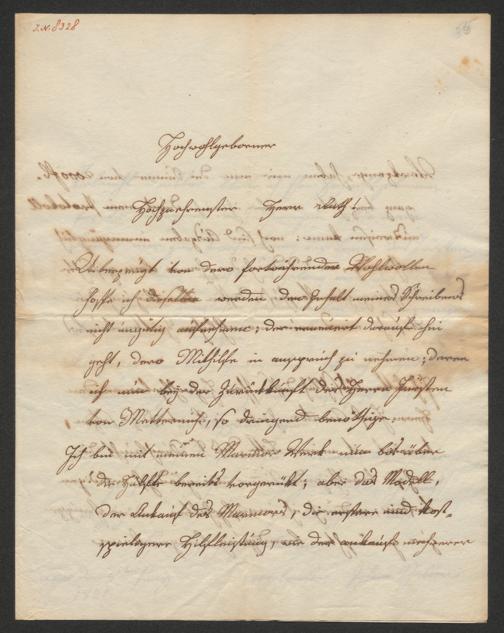 I.N. 8328
Hochwohlgeborner
Hochzuehrenster Herr Rath!
Überzeugt von dero fortwährenden Wohlwollen
hoffe ich dieselben werden den Inhalt meines Schreibens
nicht ungütig aufnehmen; der darauf hin
geht, dero Mithilfe in anspruch zu nehmen; deren
ich nun bey der Zurückkunft des Herrn Fürsten
von Metternich, so dringend benöthige.
Ich bin mit meinem Marmor Werk nun bis über
die Hälfte bereits vorgerückt; aber das Modell,
der Ankauf des Marmors, die und kost-
spieligere Hilfleistung, wie der ankauf mehrerer